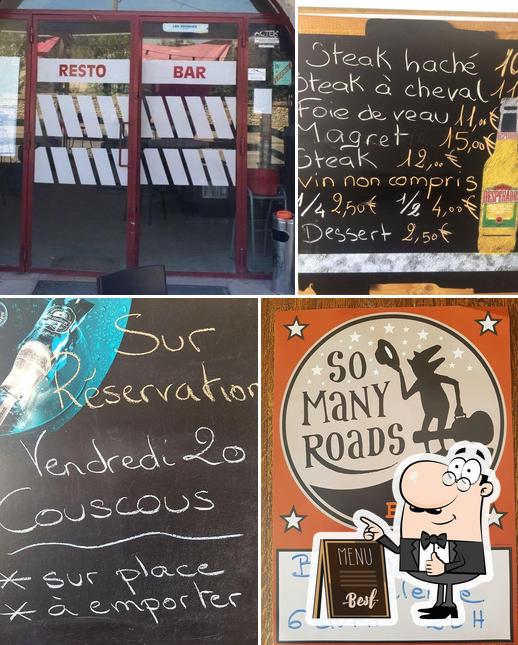 RESTO
BAR
Steak haché
Steak à cheval
Foie de veau 11,00€
Magret 15,00€
Steak 12,00€
vin non compris
1/4 2,50€ 1/2 4,00€
Dessert 2,50€
DESPERADOS
Sur
Réservation
Vendredi 20
Couscous
* sur place
* à emporter
SO
MANY
ROADS
MENU
Best